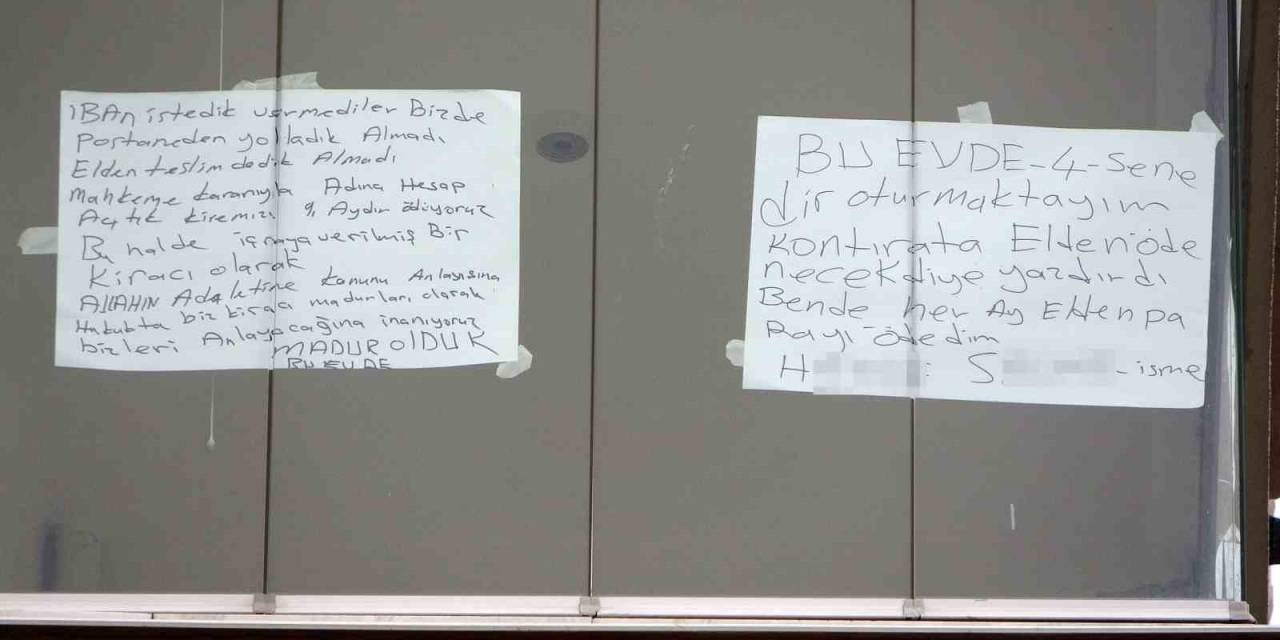 İBAN istedik vermediler Bizde
Postaneden yolladık Almadı
Elden teslim dedik Almadı
Mahkeme kararıyla Adına Hesap
Açtık kiremizi 9, Aydır ödüyoruz
Bu halde icraya verilmiş Bir
Kiracı olarak
ALLAHIN Adaletine kanunu Anlayışına
Hukukta biz kiracı madurları olarak
bizleri Anlayacağına inanıyoruz
MADUR OlDUK
BU EVDE
BU EVDE-4-Sene
dir oturmaktayım
Kontırata Elden öde
necek diye yazdırdı
Bende her Ay Elden pa
Rayı ödedim
H S - isme